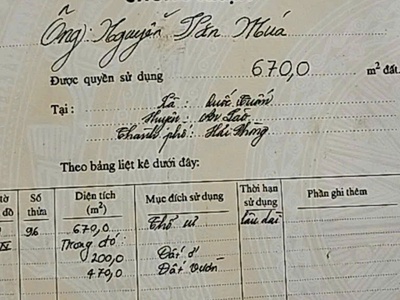 Ông: Nguyễn Văn Muá
Được quyền sử dụng 670,0 m² đất.
Tại : Xã : Quốc Tuấn
Huyện : An Lão
Thành phố : Hải Phòng
Theo bảng liệt kê dưới đây:
tờ đồ Số thửa Diện tích (m²) Mục đích sử dụng Thời hạn sử dụng Phần ghi thêm
96 670,0 Thổ cư lâu dài
Trong đó:
200,0 Đất ở
470,0 Đất vườn